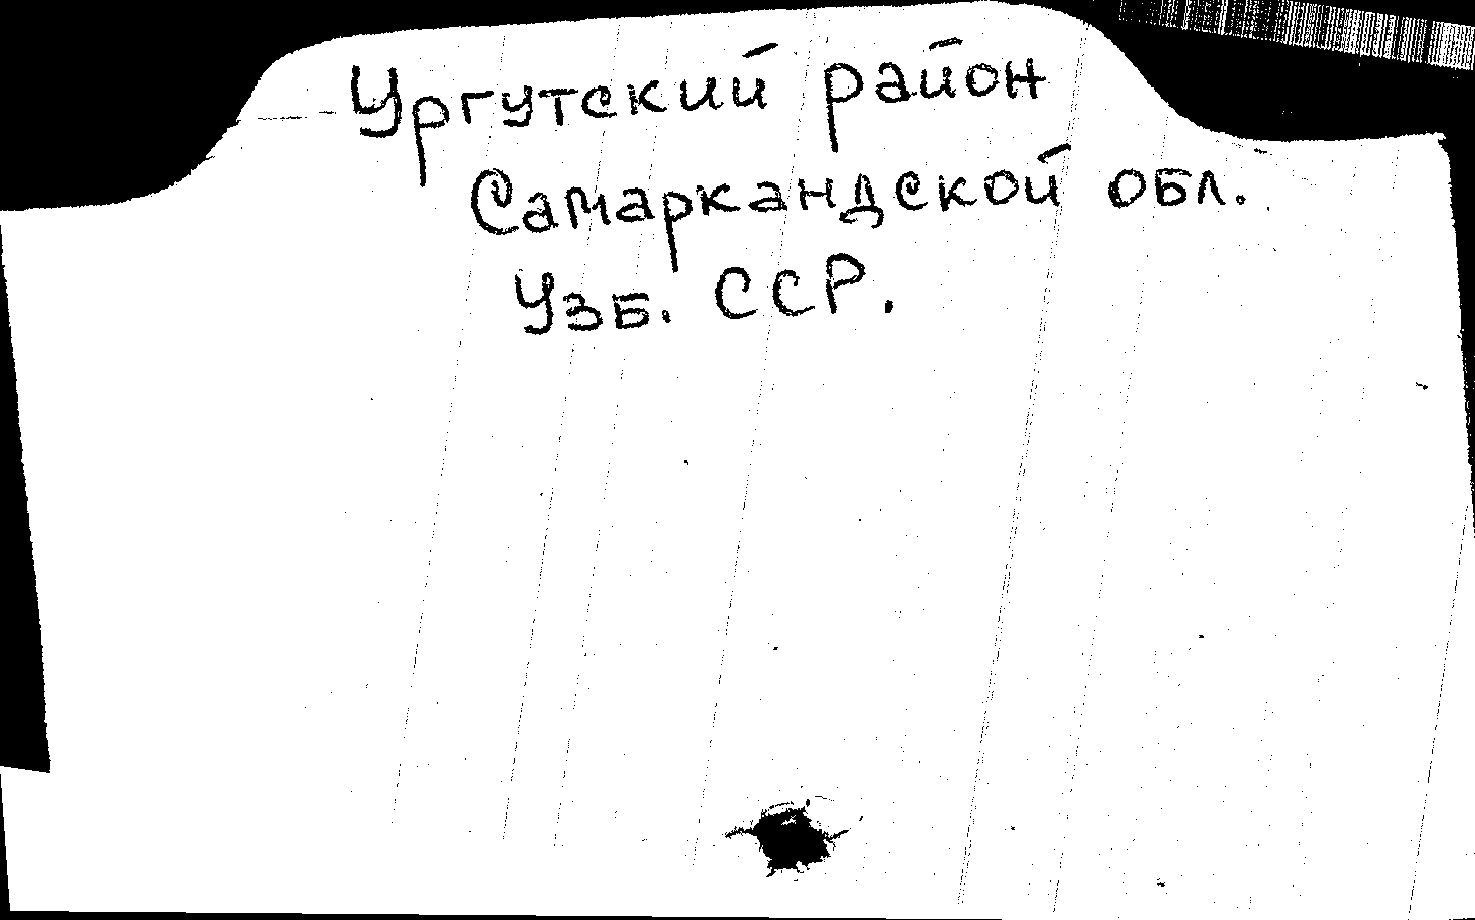 Ургутский район
Самаркандской обл.
Узб. ССР.